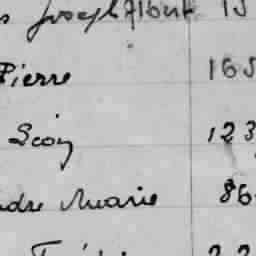 Joseph Albert 15
Pierre 165
Léon 123
Marie 86